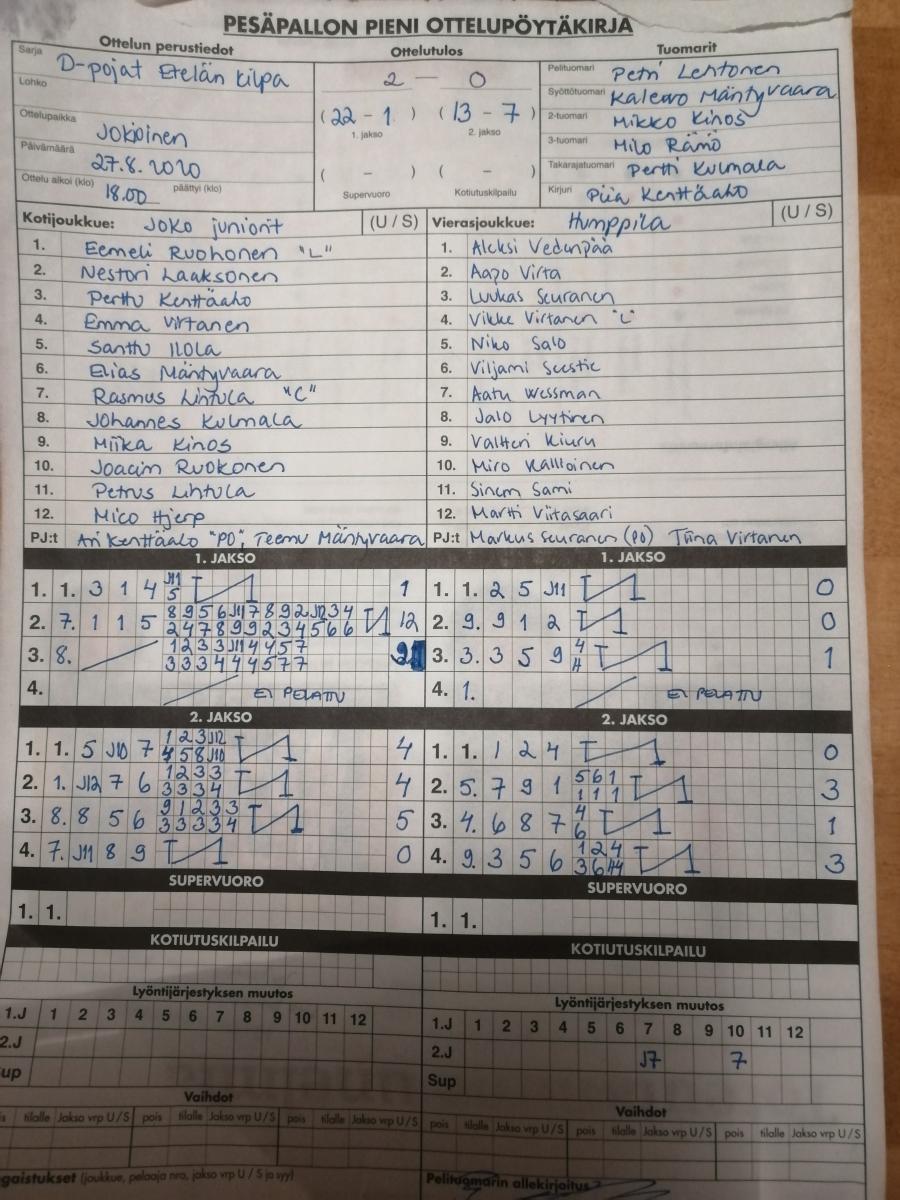 PESÄPALLON PIENI OTTELUPÖYTÄKIRJA
Ottelun perustiedot
Ottelutulos
Tuomarit
Sarja D-pojat Etelän kilpa
Lohko
Ottelupaikka Jokioinen
Päivämäärä 27.8.2020
Ottelu alkoi (klo) 18.00 päättyi (klo)
2 — 0
(22 - 1) (13 - 7)
1. jakso 2. jakso
( - ) ( - )
Supervuoro Kotiutuskilpailu
Pelituomari Petri Lehtonen
Syöttötuomari Kalervo Mäntyvaara
2-tuomari Mikko Kinos
3-tuomari Milo Rämö
Takarajatuomari Pertti Kulmala
Kirjuri Piia Kenttäaho
Kotijoukkue: Joko juniorit (U / S)
1. Eemeli Ruohonen "L"
2. Nestori Laaksonen
3. Perttu Kenttäaho
4. Emma Virtanen
5. Santtu Ilola
6. Elias Mäntyvaara
7. Rasmus Lintula "C"
8. Johannes Kulmala
9. Miika Kinos
10. Joacim Ruokonen
11. Petrus Lintula
12. Mico Hjerp
PJ:t Ari Kenttäaho "PO", Teemu Mäntyvaara
Vierasjoukkue: Humppila (U / S)
1. Aleksi Vedenpää
2. Aapo Virta
3. Luukas Seuranen
4. Vikke Virtanen "L"
5. Niko Salo
6. Viljami
7. Aatu Wessman
8. Jalo Lyytinen
9. Valtteri Kiuru
10. Miro Kallioinen
11. Sinem Sami
12. Martti Viitasaari
PJ:t Markus Seuranen (PO) Tiina Virtanen
1. JAKSO
1. 1. 3 1 4 J11 1
5
2. 7. 1 1 5 8 9 5 6 J11 7 8 9 2 J12 3 4 12
2 4 7 8 9 9 2 3 4 5 6 6
3. 8. 1 2 3 3 J11 4 4 5 7
3 3 3 4 4 4 5 7 7
4. EI PELATTU
1. JAKSO
1. 1. 2 5 J11 0
2. 9. 9 1 2 0
3. 3. 3 5 9 4 1
4. 1. EI PELATTU
2. JAKSO
1. 1. 5 J10 7 1 2 3 J12 4
4 5 8 J10
2. 1. J12 7 6 1 2 3 3 4
3 3 3 4
3. 8. 8 5 6 9 1 2 3 3 5
3 3 3 3 4
4. 7. J11 8 9 0
2. JAKSO
1. 1. 1 2 4 0
2. 5. 7 9 1 5 6 1 3
1 1 1
3. 4. 6 8 7 4 1
6
4. 9. 3 5 6 1 2 4 3
3 6
SUPERVUORO
1. 1.
SUPERVUORO
1. 1.
KOTIUTUSKILPAILU
KOTIUTUSKILPAILU
Lyöntijärjestyksen muutos
1.J 1 2 3 4 5 6 7 8 9 10 11 12
2.J
Sup
Lyöntijärjestyksen muutos
1.J 1 2 3 4 5 6 7 8 9 10 11 12
2.J J7 7
Sup
Vaihdot
tilalle Jakso vrp U / S pois tilalle Jakso vrp U / S pois tilalle Jakso vrp U / S
Vaihdot
pois tilalle Jakso vrp U / S pois tilalle Jakso vrp U / S pois tilalle Jakso vrp U / S
gaistukset (joukkue, pelaaja nro, jakso vrp U / S ja syy)
Pelituomarin allekirjoitus